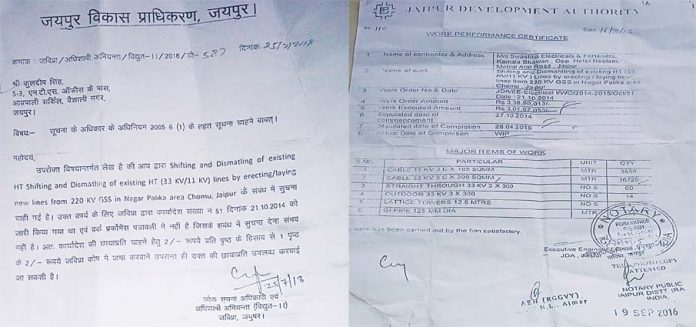 जयपुर विकास प्राधिकरण, जयपुर।
क्रमांक : जविप्रा/अधिशाषी अभियन्ता/विद्युत-11/2018/डी- 587 दिनांक: 25/7/2018
श्री कुलदीप सिंह,
S-3, एन.टी.एस. ऑफीस के पास,
आम्रपाली सर्किल, वैशाली नगर,
जयपुर।
विषय:- सूचना के अधिकार के अधिनियम 2005 6 (1) के तहत सूचना चाहने बाबत्।
महोदय,
उपरोक्त विषयान्तर्गत लेख है की आप द्वारा Shifting and Dismatling of existing
HT Shifting and Dismatling of existing HT (33 KV/11 KV) lines by erecting/laying
new lines from 220 KV GSS in Nagar Pakka area Chomu, Jaipur के संबंध में सूचना
चाही गई है। उक्त कार्य के लिए जविप्रा द्वारा कार्यादेश संख्या में 51 दिनांक 21.10.2014 को
जारी किया गया था एवं वर्क प्रर्फोमेंस पत्रावली में नही है जिसके संबंध में सूचना देना संभव
नही है। अतः कार्यादेश की छायाप्रति चाहने हेतु 2/- रूपये प्रति पृष्ठ के हिसाब से 1 पृष्ठ
के 2/- रूपये जविप्रा कोष में जमा करवाने उपरान्त ही उक्त की छायाप्रति उपलब्ध करवाई
जा सकती है।
25/7/18
लोक सूचना अधिकारी एवं
अधिशाषी अभियन्ता (विद्युत-11)
जविप्रा, जयपुर।
JAIPUR DEVELOPMENT AUTHORITY
No. 110
WORK PERFORMANCE CERTIFICATE
1 Name of contractor & Address M/s Swastik Electricals & Fertilisers,
Kamara Bhawan, Opp. Hotel Neelam
Motilal Atal Road, Jaipur
Name of work Shifting and Dismatling of existing HT (33
KV/11 KV) Lines by erecting / laying new
lines from 220 KV GSS in Nagar Pakka area
Chomu, Jaipur
Work Order No & Date
21.10.2014
4 Work Order Amount
Work Executed Amount
Stipulated date of commencement 27.10.2014
7 Stipulated date of Completion 26.04.2015
Actual Date of Completion WIP
MAJOR ITEMS OF WORK
S NO PARTICULAR UNIT QTY
1 CABLE 11 KV 3 C X 185 SQMM MTR 3550
CABLE 33 KV 3 C X 300 SQMM MTR 16720
3 STRAIGHT THROUGH 33 KV 3 X 300 NOS 60
4 OUTDOOR 33 KV 3 X 300 NOS 14
5 LATTICE TOWERS 12.8 MTRS NOS
6 GI PIPE 125 MM DIA MTR
Work has been carried out by the firm satisfactory.
NOTARY
Executive Engineer
JDA,
TRUE PHOTO COPY
ATTESTED
NOTARY PUBLIC
JAIPUR DISTT (RAJ
INDIA
AEN (RGGVY)
Ajmer
19 SEP 2016